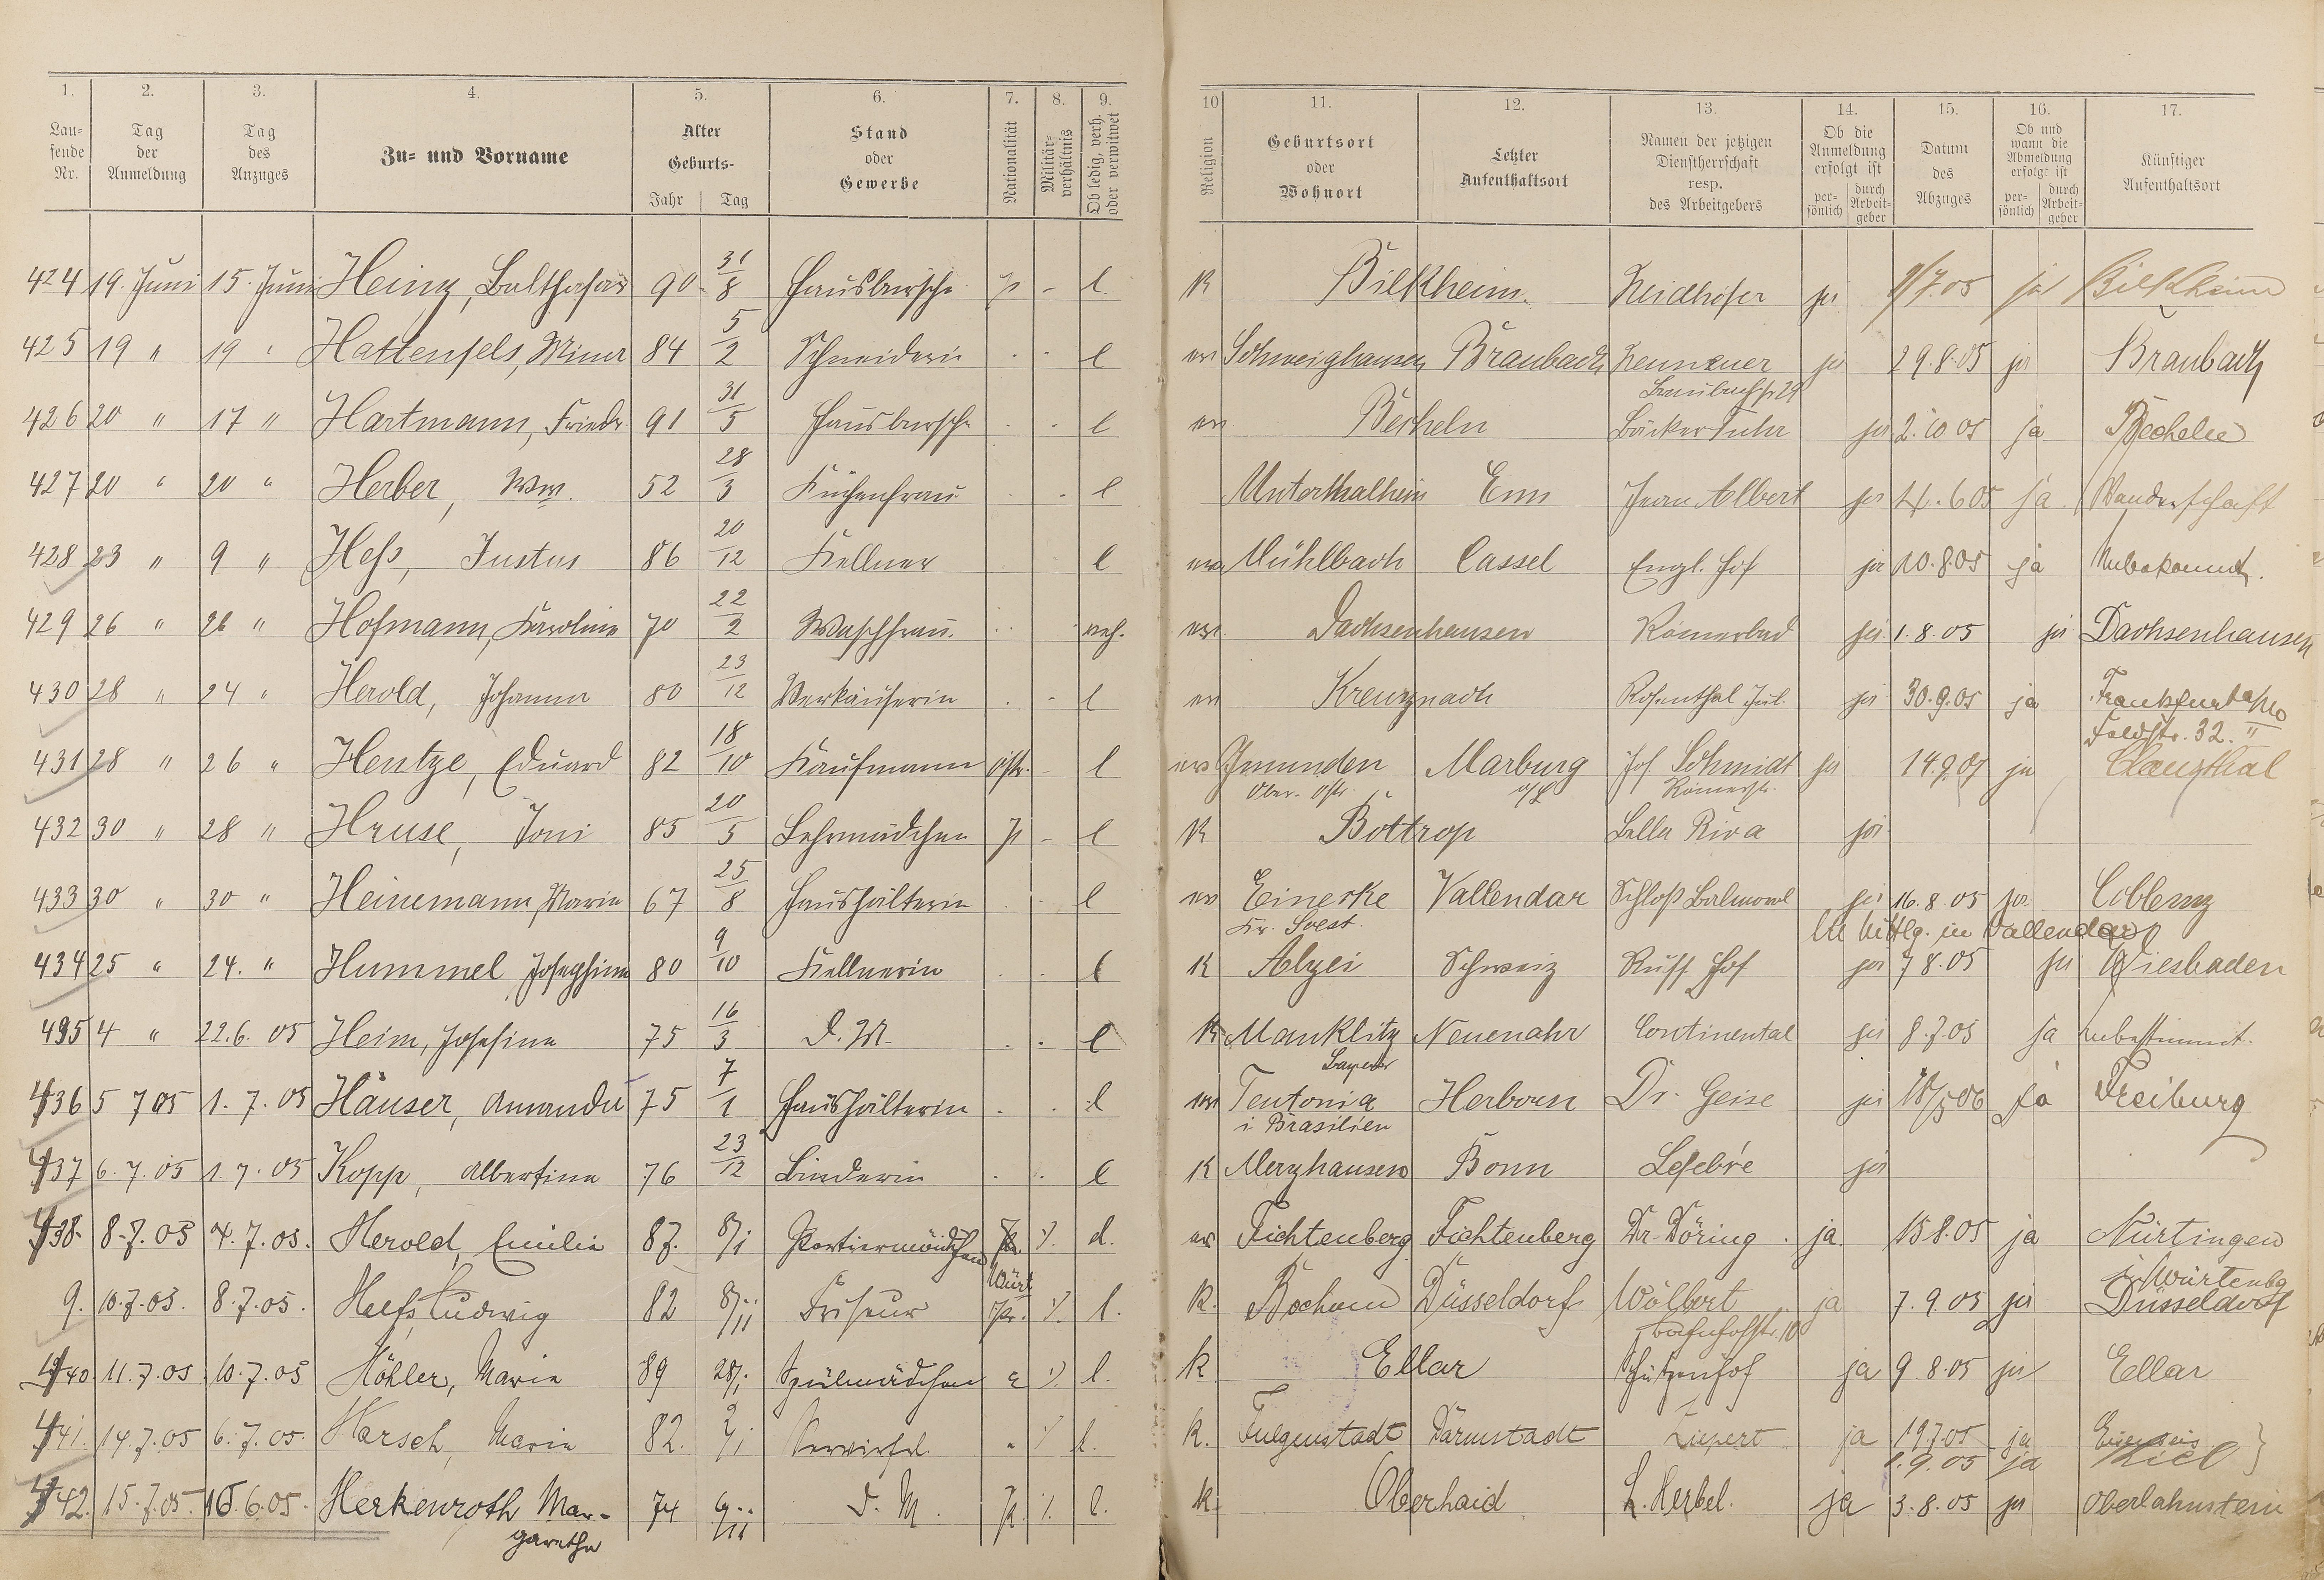 1. 2. 3. 4. 5. 6. 7. 8. 9. 10 11. 12. 13. 14. 15. 16. 17.
Lau-fende Nr. | Tag der Anmeldung | Tag des Anzuges | Zu- und Vorname | Alter Geburts- Jahr Tag | Stand oder Gewerbe | Nationalität | Militär-verhältnis | Ob ledig, verh. oder verwitwet | Religion | Geburtsort oder Wohnort | Letzter Aufenthaltsort | Namen der jetzigen Dienstherrschaft resp. des Arbeitgebers | Ob die Anmeldung erfolgt ist per-sönlich durch Arbeit-geber | Datum des Abzuges | Ob und wann die Abmeldung erfolgt ist per-sönlich durch Arbeit-geber | Künftiger Aufenthaltsort
424 19. Juni 15. Juni Heinz, Balthasar 90 31/8 Hausbursche p - l K Bilkheim Neidhöfer ja 9/7.05 ja Bilkheim
425 19 " 19 " Hattenfels, Mina 84 5/2 Schneiderin l ev Schweighausen Braubach ja 29.8.05 ja Braubach
426 20 " 17 " Hartmann, Friedr. 91 31/5 Hausbursche l ev Becheln Bäcker Fuhr ja 2.10.05 ja Becheln
427 20 " 20 " Herber, Ww. 52 28/3 Küchenfrau - l Unterthalheim Ems Frau Albert ja 6.05 ja Wanderschaft
428 23 " 9 " Heß, Justus 86 20/12 Kellner l ev Mühlbach Cassel Engl. Hof ja 10.8.05 ja Unbekannt.
429 26 " 26 " Hofmann, Karoline 70 22/2 Waschfrau verh. ev. Dachsenhausen Römerbad ja 1.8.05 ja Dachsenhausen
430 28 " 24 " Herold, Johanna 80 23/12 Verkäuferin - l ev Kreuznach Rosenthal Jul. ja 30.9.05 ja Frankfurt a/M
Feldstr. 32. II
431 28 " 26 " Hentze, Eduard 82 18/10 Kaufmann östr. - l ev Gmunden Marburg Jos. Schmidt ja 14.9.05 ja Clausthal
Ober-Östr. a/L Römerstr.
432 30 " 28 " Hruse, Toni 85 20/5 Lehrmädchen p - l K Bottrop Bella Riva ja
433 30 " 30 " Heinemann, Marie 67 25/8 Haushälterin l ev Einecke Vallendar Schloß Balmoral ja 16.8.05 ja Coblenz
Kr. Soest. in Vallendar
434 25 " 24. " Hummel Josephine 80 9/10 Kellnerin l K Alzei Schweiz Russ Hof ja 7 8.05 ja Wiesbaden
435 4 " 22.6.05 Heim, Josefine 75 16/3 D. M. l K Manklitz Neuenahr Continental ja 8.7.05 ja unbestimmt.
Bayern
436 5 7 05 1.7.05 Häuser, Amanda 75 7/1 Haushälterin l ev Teutonia Herborn Dr. Geise ja 18/5 06 ja Freiburg
i Brasilien
437 6.7.05 1.7.05 Kopp, Albertine 76 23/12 Binderin l K Merzhausen Bonn Lefebre ja
438. 8.7.05 4.7.05. Herold, Emilie 87. 8/1 Portiermädchen d. ev Fichtenberg Fichtenberg Dr. Döring ja 15 8.05 ja Nürtingen
Württ i. Würtenbg
9. 10.7.05. 8.7.05. Heeß Ludwig 82 8/11 Friseur Pr. l. K. Bochum Düsseldorf Wölbert ja 7.9.05 ja Düsseldorf
Bahnhofstr. 10
440. 11.7.05 10.7.05 Höhler, Marie 89 Spülmädchen l. K Ellar Schützenhof ja 9 8.05 ja Ellar
441. 14.7.05 6.7.05 Harsch, Marie 82. l. K. Fulgenstadt Darmstadt ja 19.7.05 ja
1.9.05 ja Kiel
442. 15.7.05. 15.6.05. Herkenroth Mar- 74 9/11 D. M. l. K. Oberhaid L. Herbel. ja 3.8.05 ja Oberlahnstein
garetha